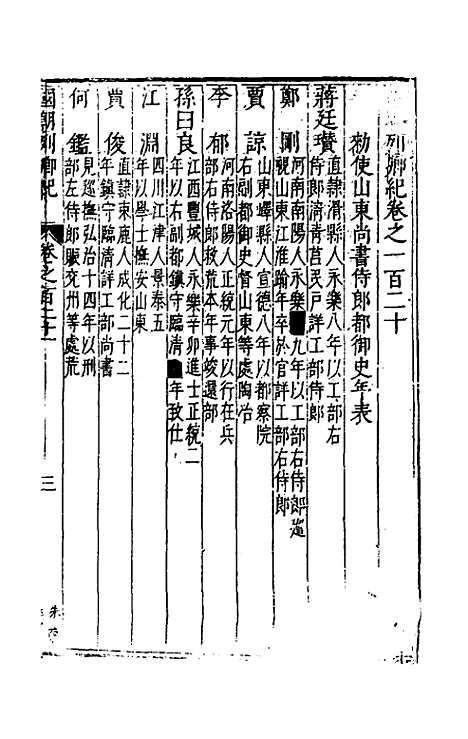 列卿紀卷之一百二十
勑使山東尚書侍郎都御史年表
蔣廷瓚 直隸滑縣人永樂八年以工部右
侍郎濟青莒民戶詳工部侍郎
鄭剛 河南南陽人永樂九年以工部右侍郎巡
視山東江淮踰年卒於官詳工部右侍郎
賈諒 山東嶧縣人宣德八年以都察院
右副都御史督山東等處陶冶
李郁 河南洛陽人正統元年以行在兵
部右侍郎救荒本年事竣還部
孫曰良 江西豐城人永樂辛卯進士正統二
年以右副都鎮守臨清年致仕
江淵 四川江津人景泰五
年以學士撫安山東
賈俊 直隸束鹿人成化二十二
年鎮守臨清詳工部尚書
何鑑 見巡撫弘治十四年以刑
部左侍郎賑兗州等處荒
國朝列卿紀 卷之百二十 三